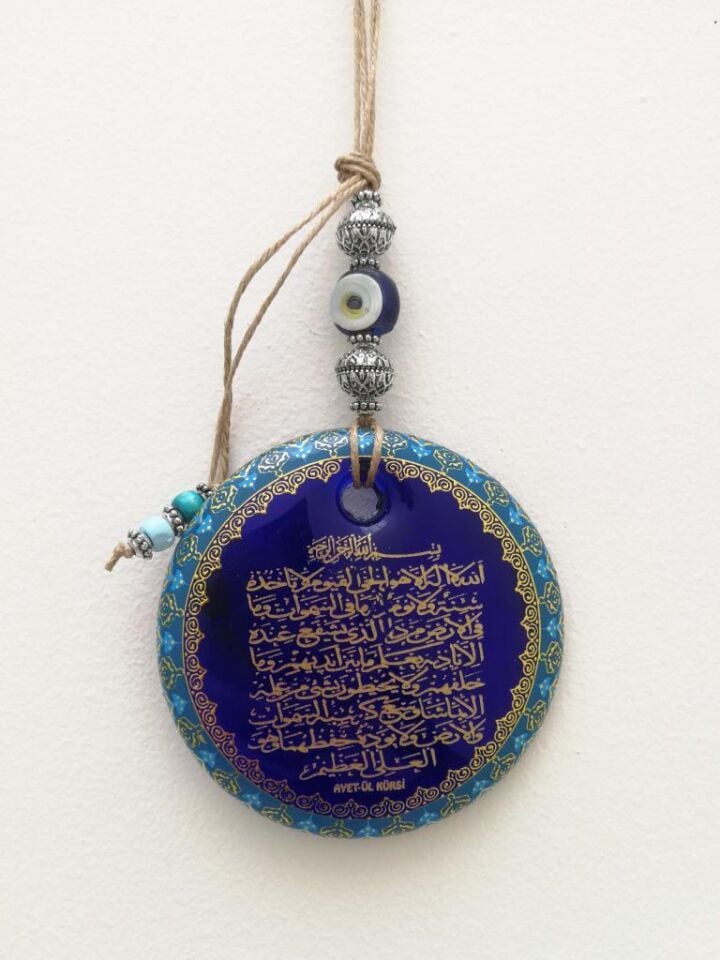 بسم الله الرحمن الرحيم
الله لا إله إلا هو الحي القيوم لا تأخذه
سنة ولا نوم له ما في السموات وما
في الأرض من ذا الذي يشفع عنده
إلا بإذنه يعلم ما بين أيديهم وما
خلفهم ولا يحيطون بشيء من علمه
إلا بما شاء وسع كرسيه السموات
والأرض ولا يؤده حفظهما وهو
العلي العظيم
AYET-ÜL KÜRSİ